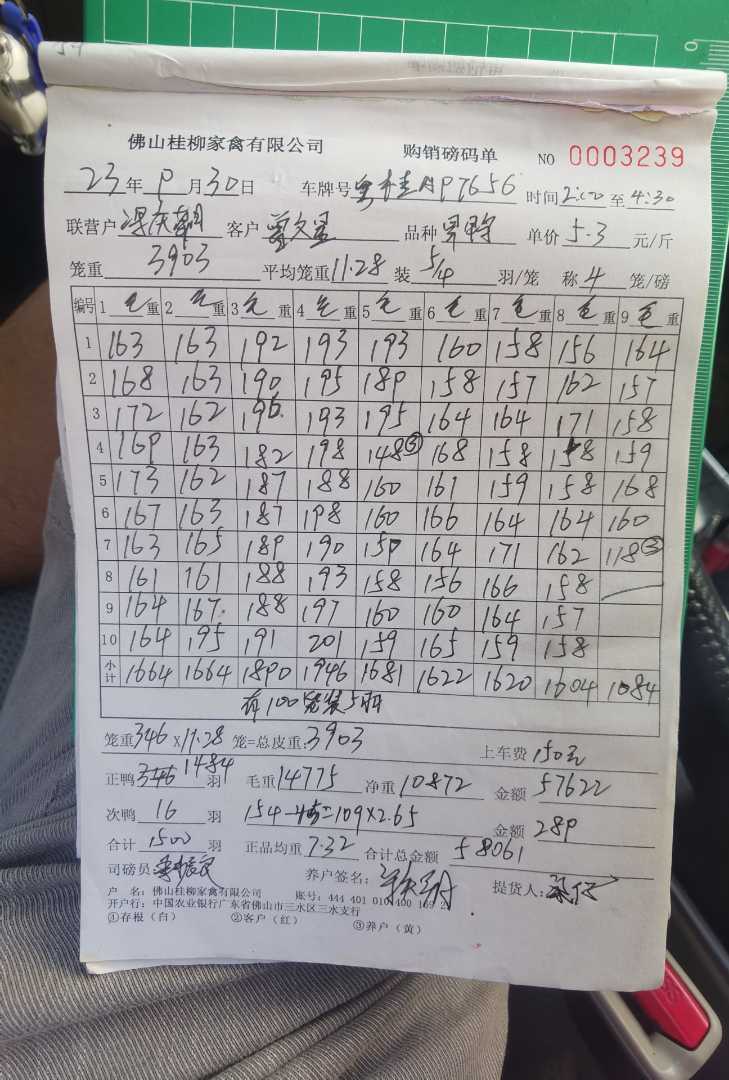 佛山桂柳家禽有限公司 购销磅码单 NO 0003239
23年9月30日 车牌号 粤桂AP7656 时间2:00至4:30
联营户 客户 曾文星 品种 单价 5.3 元/斤
笼重 3903 平均笼重11.28 装 5/4 羽/笼 称 4 笼/磅
编号 1 毛重 2 毛重 3 毛重 4 毛重 5 毛重 6 毛重 7 毛重 8 毛重 9 毛重
1 163 163 192 193 193 160 158 156 164
2 168 163 190 195 189 158 157 162 157
3 172 162 195 193 195 164 164 171 158
4 169 163 182 198 148③ 168 158 158 159
5 173 162 187 188 160 161 159 158 168
6 167 163 187 198 160 166 164 164 160
7 163 165 189 190 159 164 171 162 118③
8 161 161 188 193 158 156 166 158
9 164 167 188 197 160 160 164 157
10 164 195 191 201 159 165 159 158
小计 1664 1664 1890 1946 1681 1622 1620 1604 1084
有100笼装5羽
笼重346×11.28 笼=总皮重:3903 上车费 150元
正鸭 346 1484 羽 毛重14775 净重10872 金额 57622
次鸭 16 羽 154-45=109×2.65 金额 289
合计 1500 羽 正品均重 7.32 合计总金额 58061
司磅员 养户签名: 提货人:
户 名: 佛山桂柳家禽有限公司 账号: 444 401 010 400 169 2
开户行: 中国农业银行广东省佛山市三水区三水支行
①存根(白) ②客户(红) ③养户(黄)